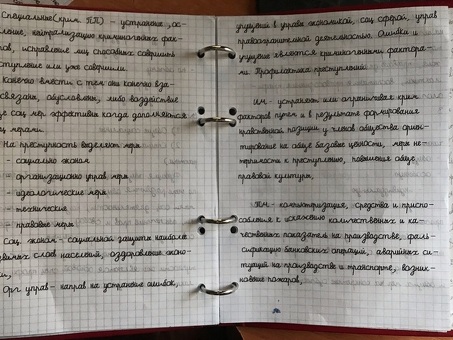 Специальные (крим. ПП) - устранение, ос-
ление, нейтрализацию криминогенных фак-
ров, исправление лиц способных совершить
ступление или уже совершили.
конечно вместе с тем они конечно вза-
связаны, обусловлены, либо воздействие
соц мер. эффективны когда дополняются
мерами.
На преступность выделяют меры
- социально эконом
- организационно управ меры
- идеологические меры
- технические
- правовые меры
Соц. эконом - социальной защиты наиболее
вимых слоев населения, оздоровление эконо-
и,
Орг управ - направ на устранение ошибок,
ущущений в управл экономикой, соц сферой, управ
правоохранительной деятельностью. Ошибки и
упущения являются криминогенными фактора-
ми. Профилактика преступлений.
ИМ - устранять или ограничивая крим
факторов путем и в результате формирования
нравственной позиции у членов общества ориен-
тирование на общие базовые ценности, меры не-
терпимости к преступлению, повышения обще
правовой культуры,
ТМ - компьютеризация, средства и приспо-
собления к искажению количественных и ка-
чественных показателей на производстве, фаль-
сификацию банковских операций, аварийных си-
туаций на производстве и транспорте, возник-
новение пожаров,